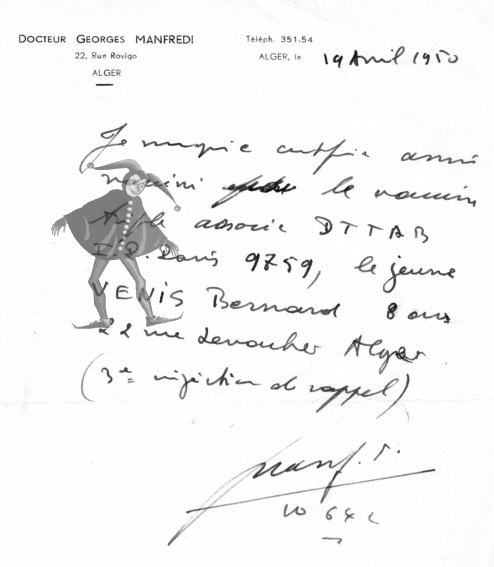 DOCTEUR GEORGES MANFREDI
22, Rue Rovigo
ALGER
Téléph. 351.54
ALGER, le 19 Avril 1950
Je soussigné certifie avoir
le vaccin
triple associé DTTAB
I.P. Paris 9759, le jeune
VENIS Bernard 8 ans
22 rue Alger
(3e injection de rappel)